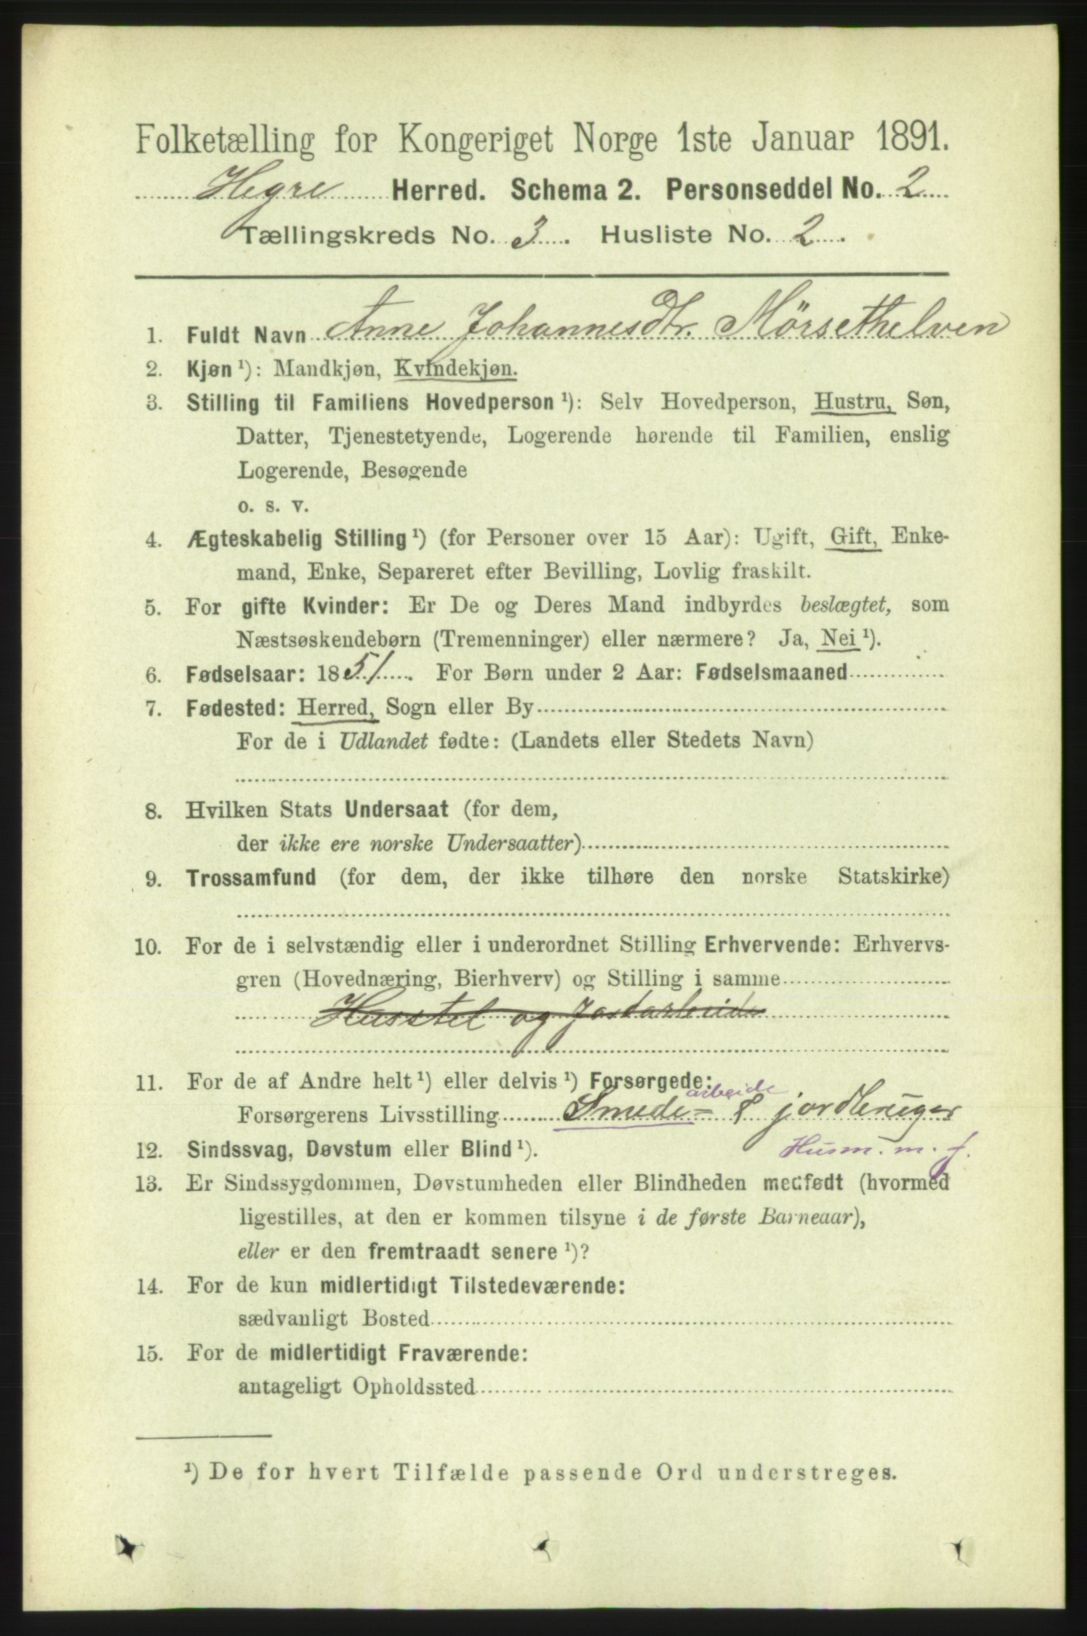 Folketælling for Kongeriget Norge 1ste Januar 1891.
Hegre Herred. Schema 2. Personseddel No. 2
Tællingskreds No. 3. Husliste No. 2.
1. Fuldt Navn Anne Johannesdtr. Mörsethelven
2. Kjøn ¹): Mandkjøn, Kvindekjøn.
3. Stilling til Familiens Hovedperson ¹): Selv Hovedperson, Hustru, Søn,
Datter, Tjenestetyende, Logerende hørende til Familien, enslig
Logerende, Besøgende
o. s. v.
4. Ægteskabelig Stilling ¹) (for Personer over 15 Aar): Ugift, Gift, Enke-
mand, Enke, Separeret efter Bevilling, Lovlig fraskilt.
5. For gifte Kvinder: Er De og Deres Mand indbyrdes beslægtet, som
Næstsøskendebørn (Tremenninger) eller nærmere? Ja, Nei ¹).
6. Fødselsaar: 1851. For Børn under 2 Aar: Fødselsmaaned
7. Fødested: Herred, Sogn eller By
For de i Udlandet fødte: (Landets eller Stedets Navn)
8. Hvilken Stats Undersaat (for dem,
der ikke ere norske Undersaatter)
9. Trossamfund (for dem, der ikke tilhøre den norske Statskirke)
10. For de i selvstændig eller i underordnet Stilling Erhvervende: Erhvervs-
gren (Hovednæring, Bierhverv) og Stilling i samme
Husstel og Jordarbeide
11. For de af Andre helt ¹) eller delvis ¹) Forsørgede:
arbeide
Forsørgerens Livsstilling Smede- & jordbruger
12. Sindssvag, Døvstum eller Blind ¹). Husm. m. j.
13. Er Sindssygdommen, Døvstumheden eller Blindheden medfødt (hvormed
ligestilles, at den er kommen tilsyne i de første Barneaar),
eller er den fremtraadt senere ¹)?
14. For de kun midlertidigt Tilstedeværende:
sædvanligt Bosted
15. For de midlertidigt Fraværende:
antageligt Opholdssted
¹) De for hvert Tilfælde passende Ord understreges.